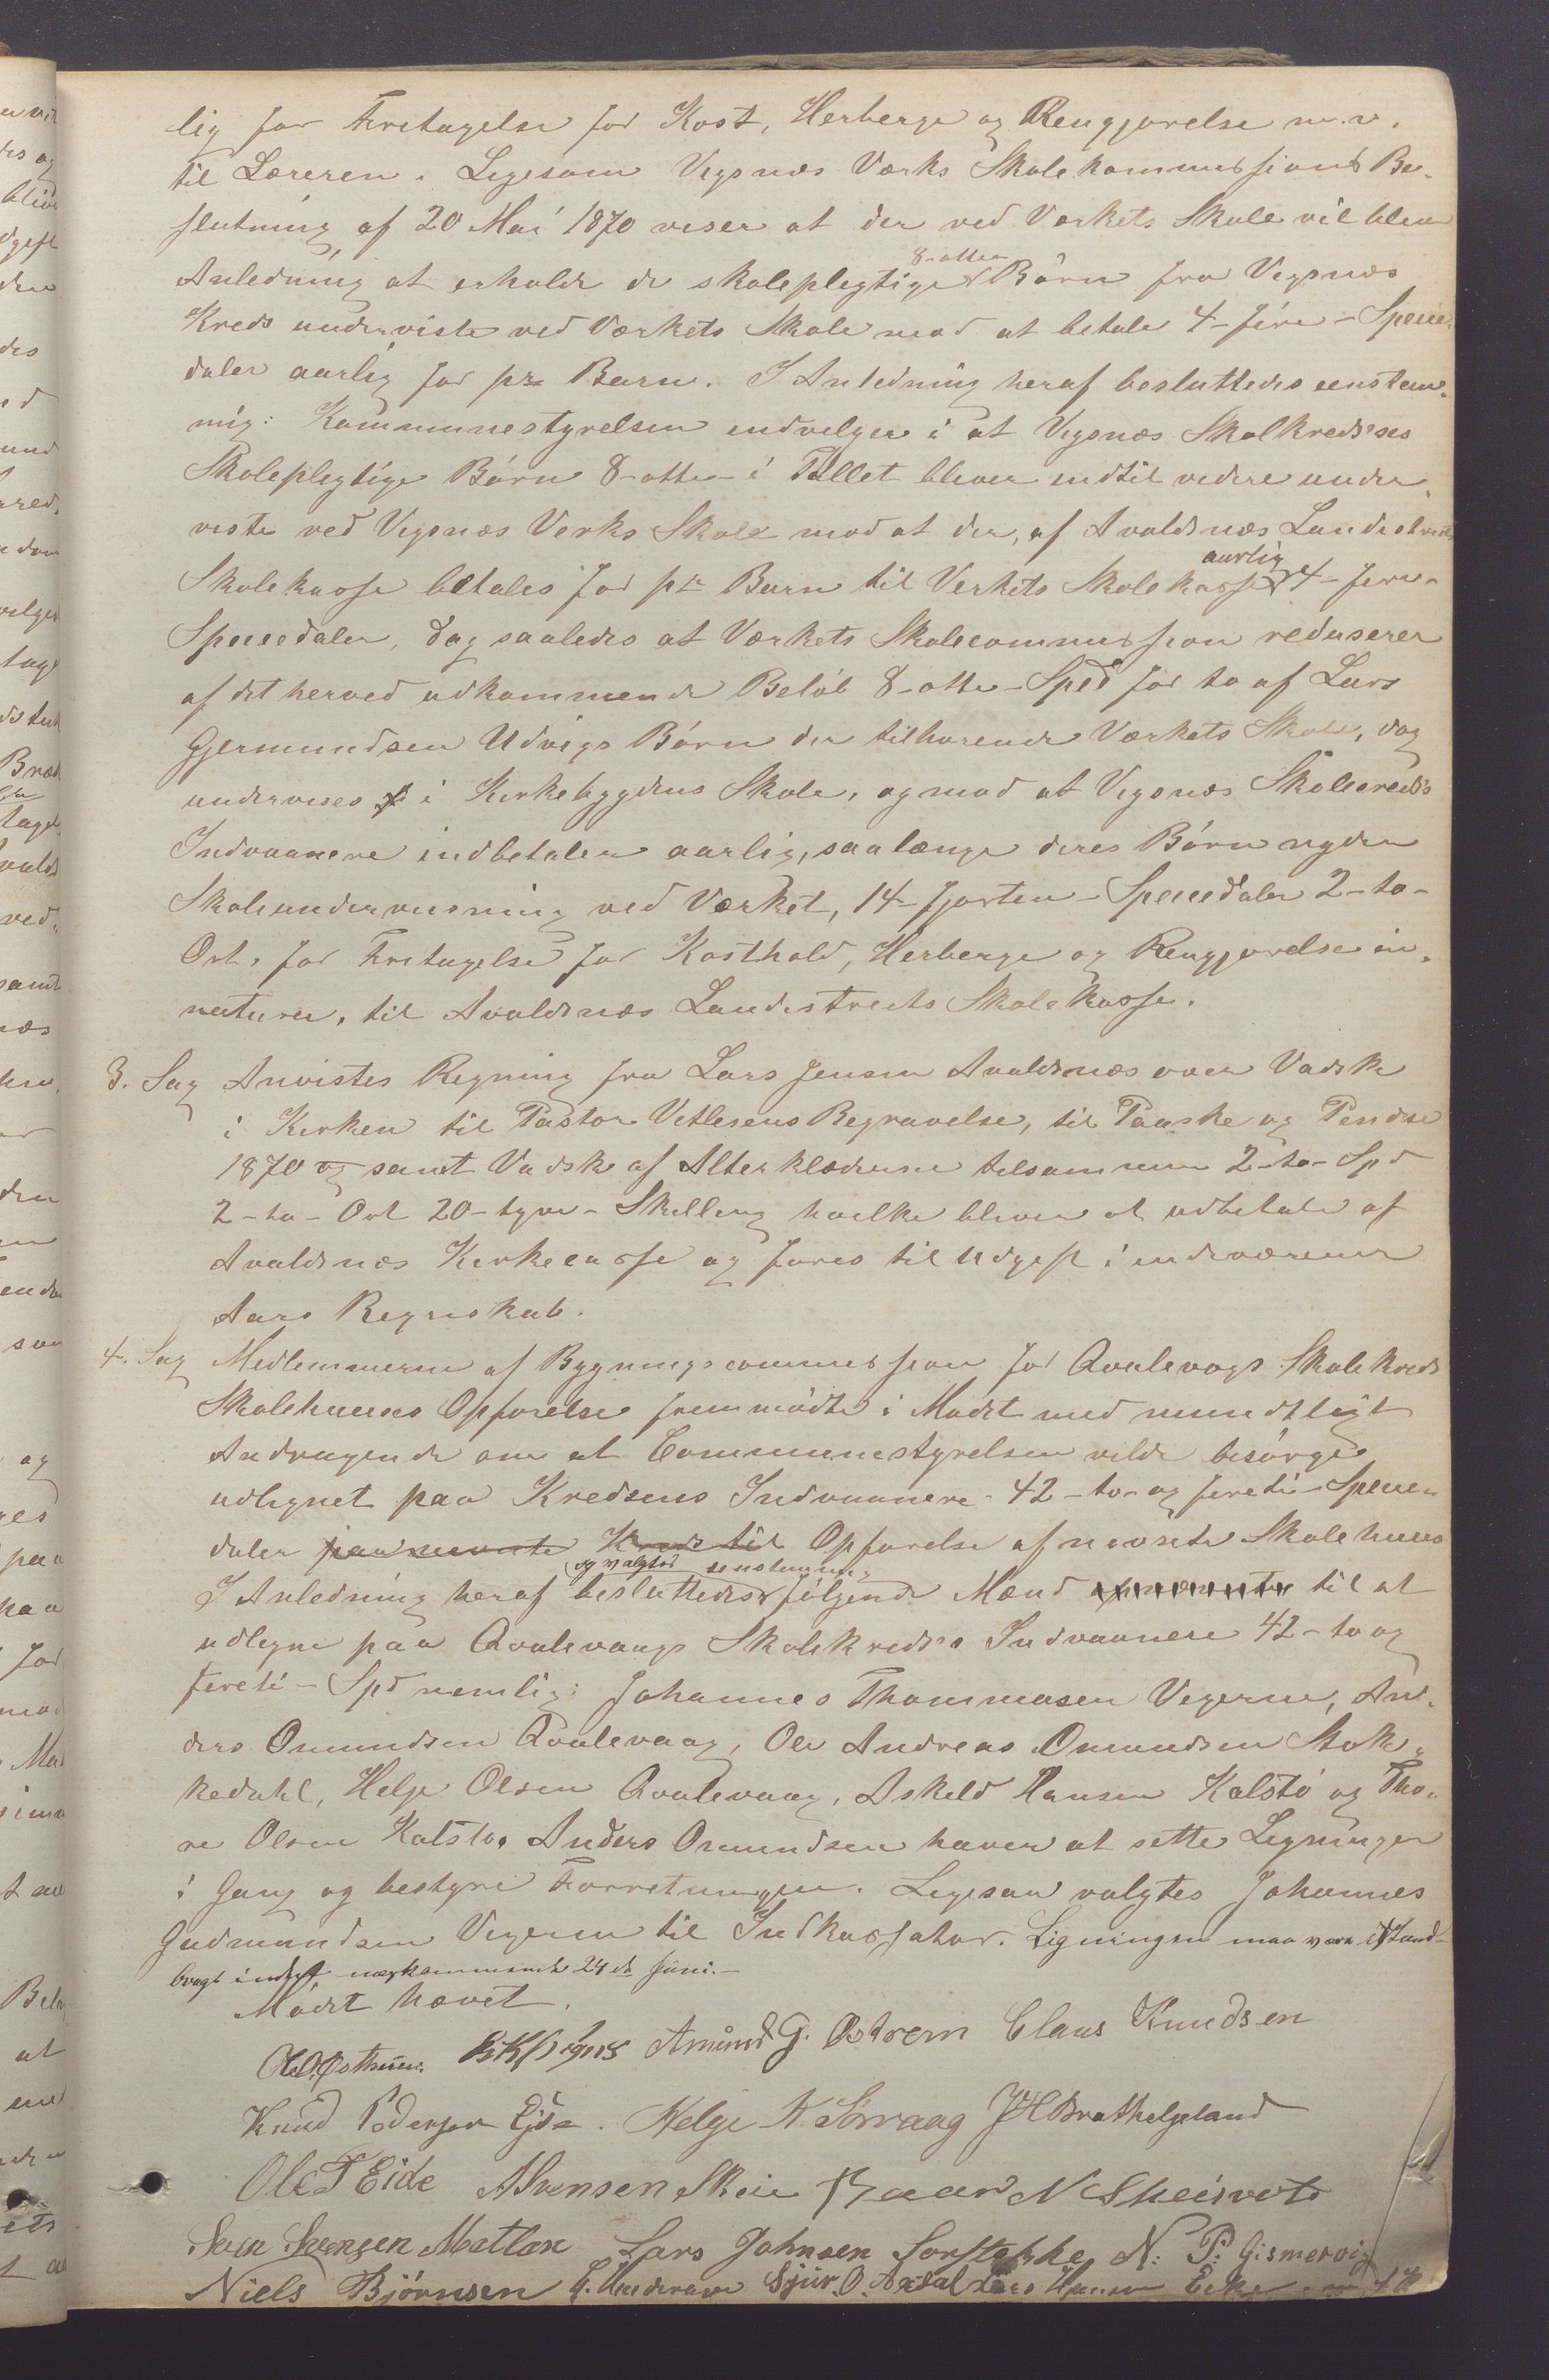 lig for Fritagelse for Kost, Herberge og Rengjørelse m.v.
til Læreren. Ligesom Vigsnæs Værks Skolekommissions Be-
slutning af 20 Mai 1870 viser at der ved Værkets Skole vil blive
Anledning at erholde de skolepligtige 8-otte Børn fra Vigsnæs
Kreds underviste ved Værkets Skole mod at betale 4-fire-Specie
daler aarlig for pr Barn. I Anledning heraf besluttedes eenstem-
mig: Kommunestyrelsen indvilger i at Vigsnæs Skolkredses
Skolepligtige Børn 8-otte-i Tallet bliver indtil videre under
viste ved Vigsnæs Verks Skole mod at der, af Avaldsnæs Landistrikts
Skolekasse betales for pr Barn til Verkets Skolekasse aarlig 4-fire-
Speciedaler, dog saaledes at Værkets Skolecommission reduserer
af det herved udkommende Beløb 8-otte-Spd for to af Lars
Gjermundsen Udvigs Børn der tilhørende Værkets Skole, dog
undervises i Kirkebygdens Skole, og mod at Vigsnæs Skolecreds's
Indvaanere indbetaler aarlig, saalænge deres Børn nyder
Skoleundervisning ved Værket, 14-fjorten-Speciedaler 2-to-
Ort, for Fritagelse for Kosthold, Herberge og Rengjørelse in
natura, til Avaldsnæs Landistricts Skolekasse.
3. Sag Anvistes Regning fra Lars Jensen Avaldsnæs over Vadsk
i Kirken til Pastor Vetlesens Begravelse, til Paaske og Pendse
1870 og samt Vadsk af Alterklæderne tilsammen 2-to-Spd
2-to-Ort 20-tyve-Skilling hvilke bliver at udbetale af
Avaldsnæs Kirkecasse og føres til Udgift i indeværende
Aars Regnskab.
4. Sag Medlemmerne af Bygningscommission for Qvalevogs Skolekreds
Skolehuuses Opførelse fremmødte i Mødet med mundtligt
Andragende om at Communestyrelsen vilde besørge
udlignet paa Kredsens Indvaanere 42-to-og fireti-Specie
daler paa nævnte Kreds til Opførelse af nævnte Skolehuus
I Anledning heraf besluttedes og valgtes eenstemmig følgende Mænd til at
udligne paa Qvalevaags Skolekreds's Indvaanere 42-to og
fireti-Spd nemlig: Johannes Thommasen Vegerne, An-
ders Omundsen Qvalevaag, Ole Andreas Omundsen Stok-
kedahl, Helge Olsen Qvalevaag, Askeld Hansen Kalstø og Tho-
re Olsen Kalstø. Anders Omundsen haver at sette Ligningen
i Gang og bestyre Forretningen. Ligesaa valgtes Johannes
Gudmundsen Vegerne til Indkassator. Ligningen maa være istand-
bragt inden næstkommende 24de Juni.-
Mødet hævet.
Amund G. Østrem Claus Knudsen
Knud Pedersen Eide. Helge N. Sørvaag J H Brathelgeland
Ole T Eide A Svensen Skeie Baar N Skeisvold
Sven Svensen Matlær Lars Johnsen Sørstokke N. P. Gismervig
Niels Bjørnsen Sjur. O. Axdal Lars Hansen Eike